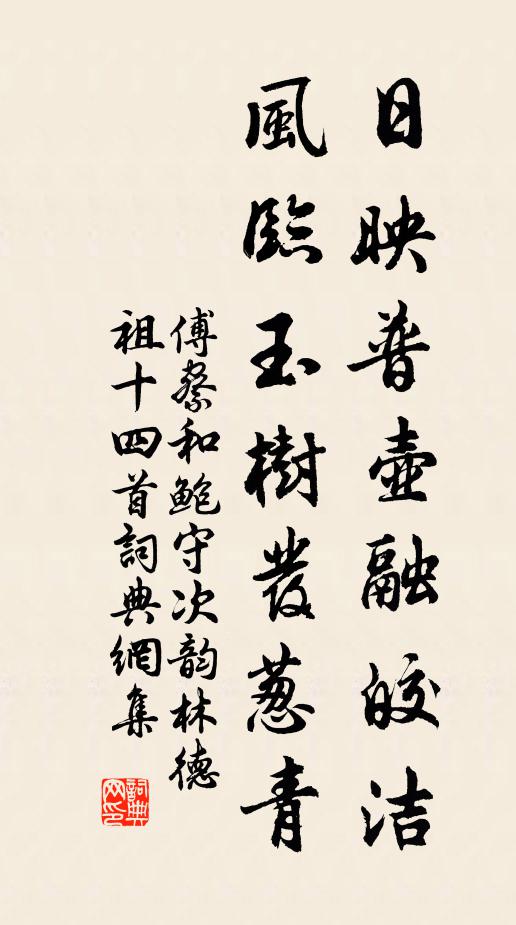 日映普壺融皎洁
風臨玉樹發葱青
傅察和鮑守次韵林德
祖十四首詞典網集
詞典網印